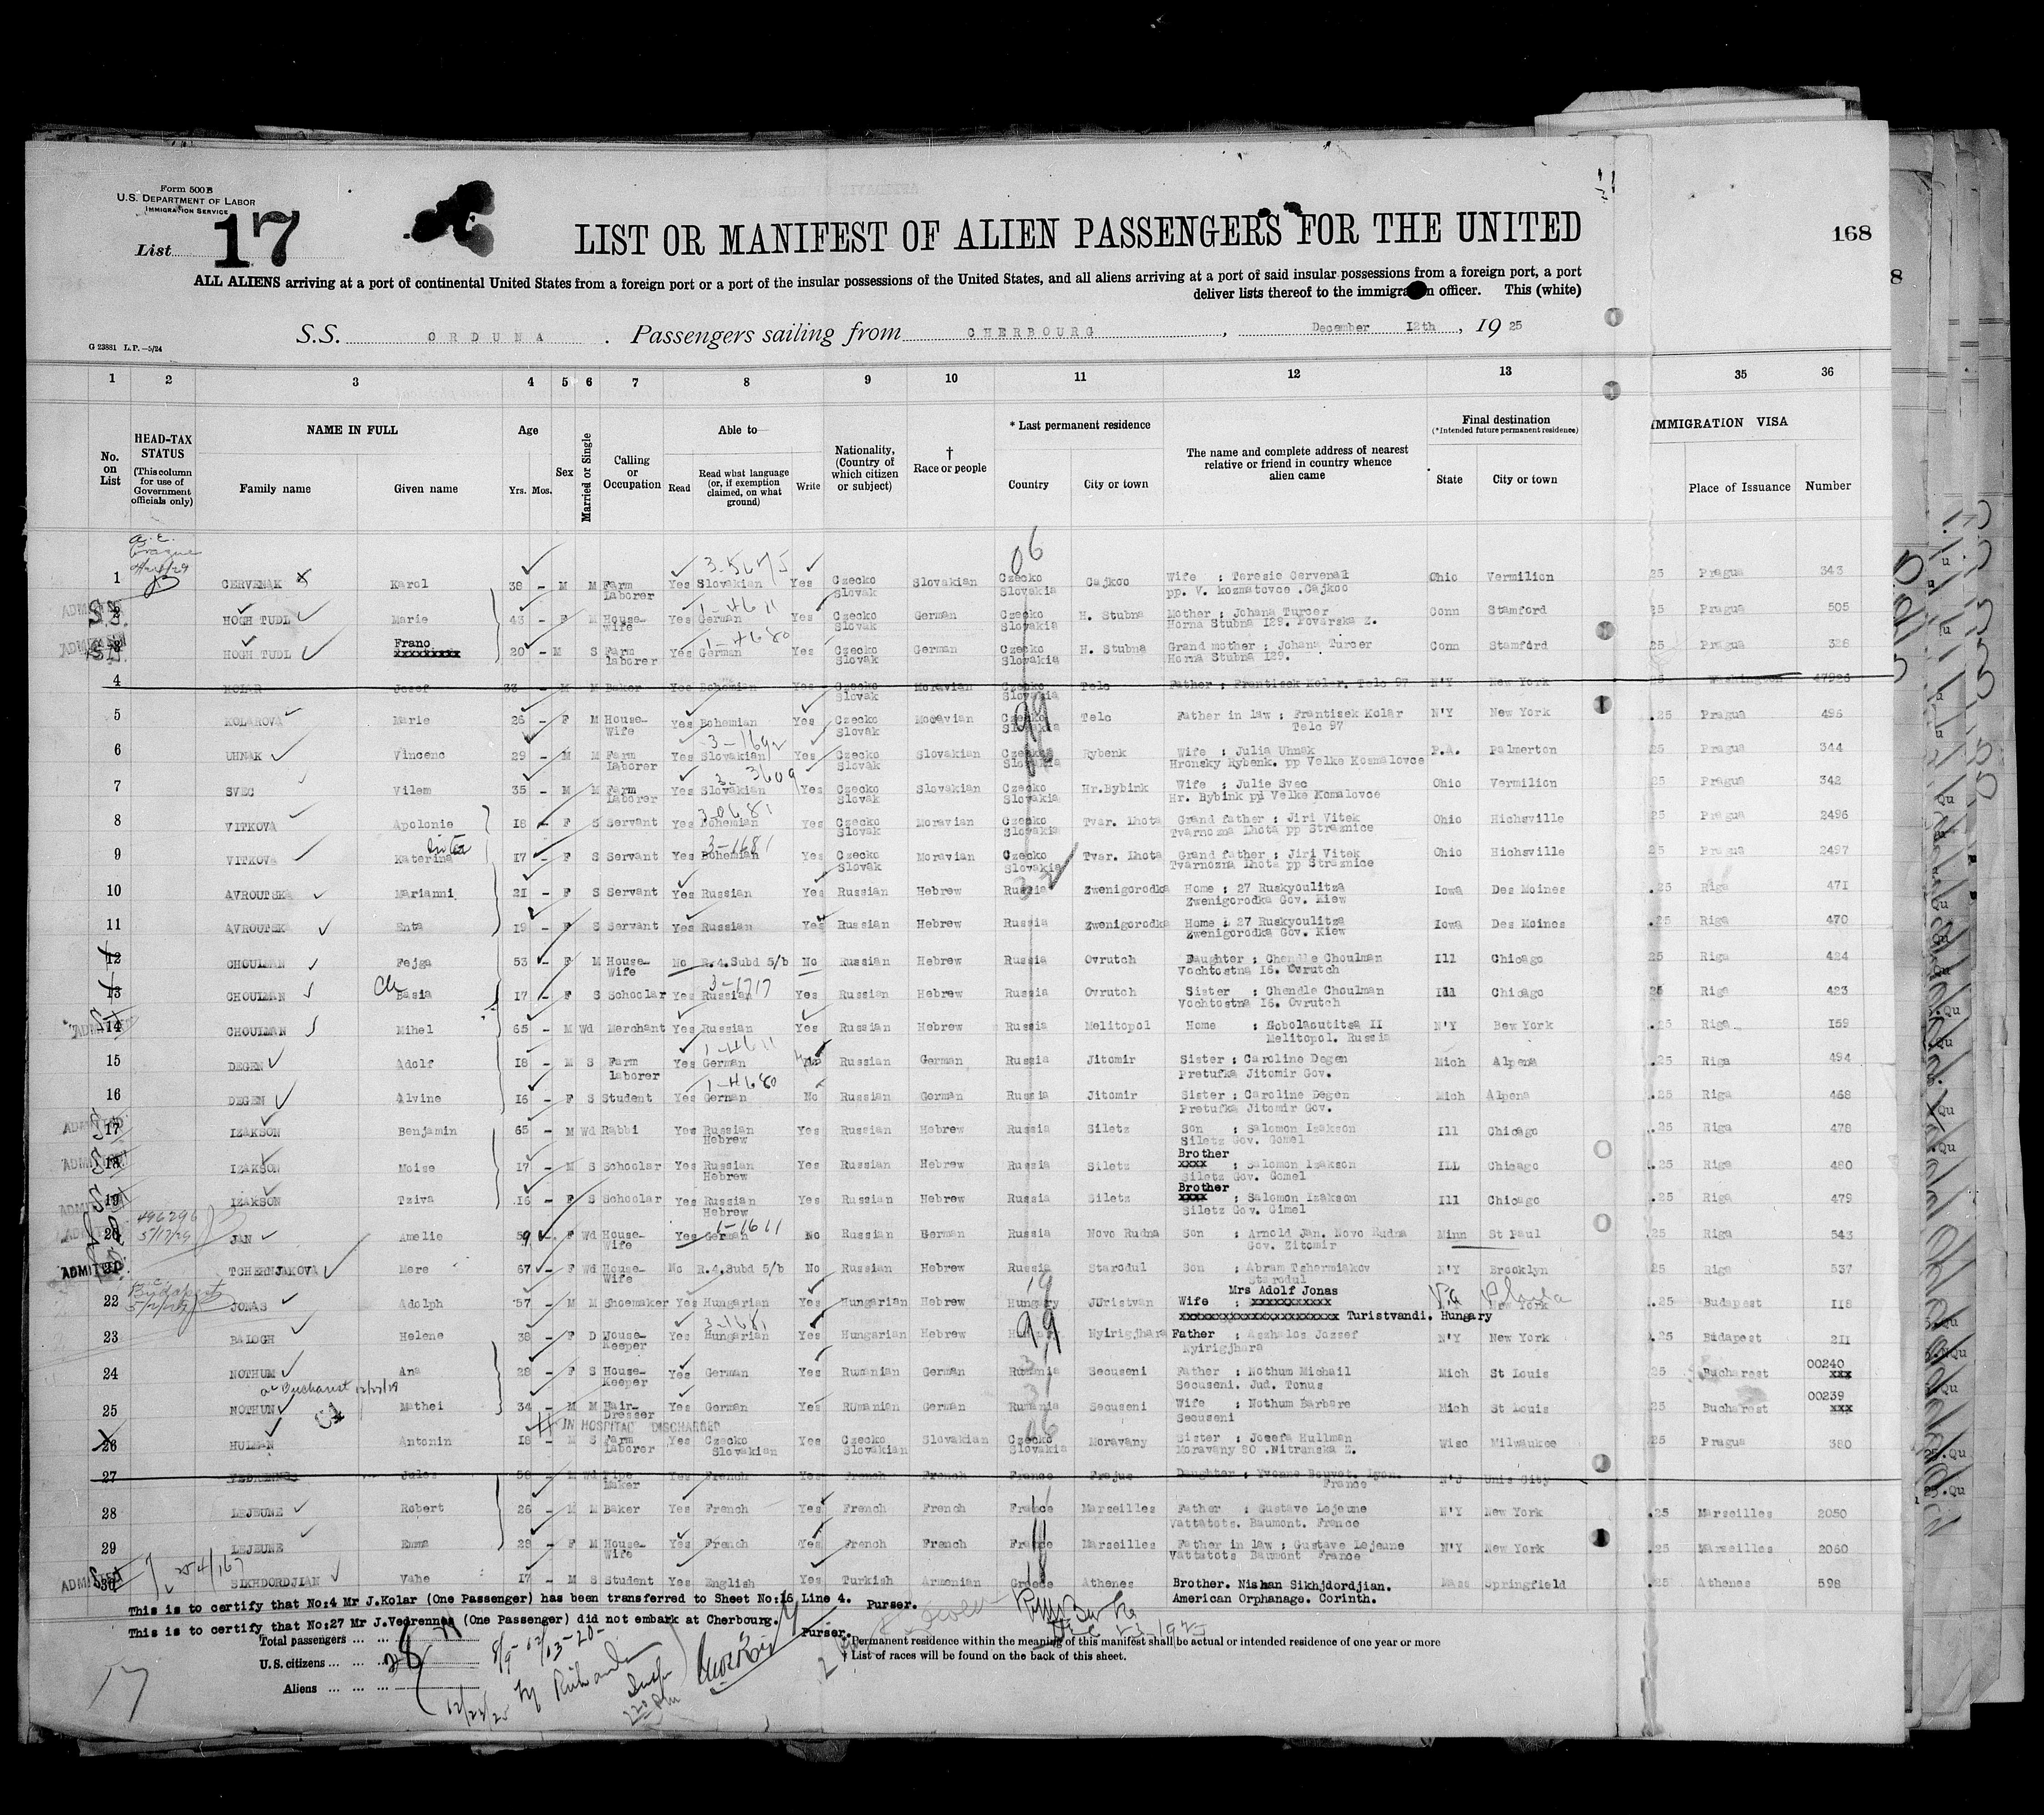 Form 500B
U.S. DEPARTMENT OF LABOR
IMMIGRATION SERVICE
List 17
LIST OR MANIFEST OF ALIEN PASSENGERS FOR THE UNITED
168
ALL ALIENS arriving at a port of continental United States from a foreign port or a port of the insular possessions of the United States, and all aliens arriving at a port of said insular possessions from a foreign port, a port
deliver lists thereof to the immigration officer. This (white)
S.S. ORDUNA . Passengers sailing from CHERBOURG , December 12th , 19 25
G 23881 L.P.—5/24
1 2 3 4 5 6 7 8 9 10 11 12 13 35 36
No. on List
HEAD-TAX STATUS (This column for use of Government officials only)
NAME IN FULL Family name Given name
Age Yrs. Mos.
Sex
Married or Single
Calling or Occupation
Able to Read Read what language (or, if exemption claimed, on what ground) Write
Nationality, (Country of which citizen or subject)
† Race or people
* Last permanent residence Country City or town
The name and complete address of nearest relative or friend in country whence alien came
Final destination (*Intended future permanent residence) State City or town
IMMIGRATION VISA Place of Issuance Number
1 CERVENAK Karol 38 – M M Farm Laborer Yes Slovakian Yes Czecko Slovak Slovakian Czecko Slovakia Cajkoo Wife : Teresie Cervenal pp. V. kozmatovce .Cajkoo Ohio Vermilion 25 Pragua 343
2 HOGH TUDL Marie 43 – F M House-Wife Yes German Yes Czecko Slovak German Czecko Slovakia H. Stubna Mother : Johana Turcer Horna Stubna 129. Povarska Z. Conn Stamford 25 Pragua 505
3 HOGH TUDL Frano 20 – M S Farm laborer Yes German Yes Czecko Slovak German Czecko Slovakia H. Stubna Grand mother : Johana Turcer Horna Stubna 129. Conn Stamford 25 Pragua 328
4 KOLAR Josef 33 – M M Baker Yes Bohemian Yes Czecko Slovak Moravian Czecko Slovakia Telc Father : Frantisek Kolar. Telc 97 N'Y New York 25 Washington 47926
5 KOLAROVA Marie 26 – F M House-Wife Yes Bohemian Yes Czecko Slovak Moravian Czecko Slovakia Telc Father in law : Frantisek Kolar Telc 97 N'Y New York .25 Pragua 496
6 UHNAK Vincenc 29 – M M Farm laborer Yes Slovakian Yes Czecko Slovak Slovakian Czecko Slovakia Rybenk Wife : Julia Uhnak Hronsky Rybenk. pp Velke Kosmalovce P.A. Palmerton 25 Pragua 344
7 SVEC Vilem 35 – M M Farm laborer Yes Slovakian Yes Czecko Slovak Slovakian Czecko Slovakia Hr.Bybink Wife : Julie Svec Hr. Bybink pp Velke Komalovce Ohio Vermilion 25 Pragua 342
8 VITKOVA Apolonie 18 – F S Servant Yes Bohemian Yes Czecko Slovak Moravian Czecko Slovakia Tvar. Lhota Grand father : Jiri Vitek Tvarnozna Lhota pp Straznice Ohio Hichsville 25 Pragua 2496
9 VITKOVA Katerina 17 – F S Servant Yes Bohemian Yes Czecko Slovak Moravian Czecko Slovakia Tvar. Lhota Grand father : Jiri Vitek Tvarnozna Lhota pp Straznice Ohio Hichsville 25 Pragua 2497
10 AVROUTSKA Marianni 21 – F S Servant Yes Russian Yes Russian Hebrew Russia Zwenigorodka Home : 27 Ruskyoulitza Zwenigorodka Gov. Kiew Iowa Des Moines .25 Riga 471
11 AVROUTSKA Enta 19 – F S Servant Yes Russian Yes Russian Hebrew Russia Zwenigorodka Home : 27 Ruskyoulitza Zwenigorodka Gov. Kiew Iowa Des Moines .25 Riga 470
12 CHOULMAN Fejga 53 – F M House-Wife No R.4.Subd 5/b No Russian Hebrew Russia Ovrutch Daughter : Chendle Choulman Vochtostna 16. Ovrutch Ill Chicago 25 Riga 424
13 CHOULMAN Basia 17 – F S Schoolar Yes Russian Yes Russian Hebrew Russia Ovrutch Sister : Chendle Choulman Vochtostna 16. Ovrutch Ill Chicago 25 Riga 423
14 CHOULMAN Mihel 65 – M Wd Merchant Yes Russian Yes Russian Hebrew Russia Melitopol Home : Sobolaoutitsa II Melitopol. Russia N'Y Bew York .25 Riga 159
15 DEGEN Adolf 18 – M S Farm laborer Yes German Russian German Russia Jitomir Sister : Caroline Degen Pretufka Jitomir Gov. Mich Alpena .25 Riga 494
16 DEGEN Alvine 16 – F S Student Yes German No Russian German Russia Jitomir Sister : Caroline Degen Pretufka Jitomir Gov. Mich Alpena .25 Riga 468
17 IZAKSON Benjamin 65 – M Wd Rabbi Yes Russian Hebrew Yes Russian Hebrew Russia Siletz Son : Salomon Izakson Siletz Gov. Gomel Ill Chicago .25 Riga 478
18 IZAKSON Moise 17 – M S Schoolar Yes Russian Hebrew Yes Russian Hebrew Russia Siletz Brother : Salomon Izakson Siletz Gov. Gomel ILL Chicago .25 Riga 480
19 IZAKSON Tziva 16 – F S Schoolar Yes Russian Hebrew Yes Russian Hebrew Russia Siletz Brother : Salomon Izakson Siletz Gov. Gimel Ill Chicago .25 Riga 479
20 JAN Amelie 59 – F Wd House-Wife Yes German No Russian German Russia Novo Rudna Son : Arnold Jan. Novo Rudna Gov. Zitomir Minn St Paul .25 Riga 543
21 TCHERNJAKOVA Mere 67 – F Wd House-Wife No R.4.Subd 5/b No Russian Hebrew Russia Starodul Son : Abram Tshermiakov Starodul N'Y Brooklyn 25 Riga 537
22 JONAS Adolph 57 – M M Shoemaker Yes Hungarian Yes Hungarian Hebrew Hungary JUristvan Wife : Mrs Adolf Jonas Turistvandi. Hungary Pa Phila New York .25 Budapest 118
23 BALOGH Helene 38 – F D House-Keeper Yes Hungarian Yes Hungarian Hebrew Nyirigjhara Father : Aszhalos Jozsef Nyirigjhara N'Y New York .25 Bidapest 211
24 NOTHUM Ana 28 – F S House-Keeper Yes German Yes Rumanian German Rumania Secuseni Father : Nothum Michail Secuseni. Jud. Tonus Mich St Louis 25 Bucharest 00240
25 NOTHUN Mathei 34 – M M Hair-Dresser Yes German Yes RUmanian German Rumania Secuseni Wife : Nothum Barbare Secuseni Mich St Louis 25 Bucharest 00239
IN HOSPITAL DISCHARGED
26 HULMAN Antonin 18 – M S Farm laborer Yes Czecko Slovakian Yes Czecko Slovakian Slovakian Czecko Slovakia Moravany Sister : Josefa Hullman Moravany 80 .Nitranska Z. Wisc Milwaukee 25 Pragua 380
27 VEDRENNES Jules 58 – M Wd Pipe Maker Yes French Yes French French France Frejus Daughter : Yvonne Bouvot. Lyon. France N'J Unis City
28 LEJEUNE Robert 26 – M M Baker Yes French Yes French French France Marseilles Father : Gustave Lejeune Vattatots. Baumont. France N'Y New York .25 Marseilles 2050
29 LEJEUNE Emma 28 – F M House-Wife Yes French Yes French French France Marseilles Father in law : Gustave Lejeune Vattatots Baumont France N'Y New York .25 Marseilles 2060
30 SIKHDORDJIAN Vahe 17 – M S Student Yes English Yes Turkish Armenian Greece Athenes Brother. Nishan Sikhjdordjian. American Orphanage. Corinth. Mass Springfield .25 Athenes 598
This is to certify that No:4 Mr J.Kolar (One Passenger) has been transferred to Sheet No:16 Line 4. Purser.
This is to certify that No:27 Mr J.Vedrennes (One Passenger) did not embark at Cherbourg. Purser.
Total passengers
U.S. citizens 28
Aliens
* Permanent residence within the meaning of this manifest shall be actual or intended residence of one year or more
† List of races will be found on the back of this sheet.
17